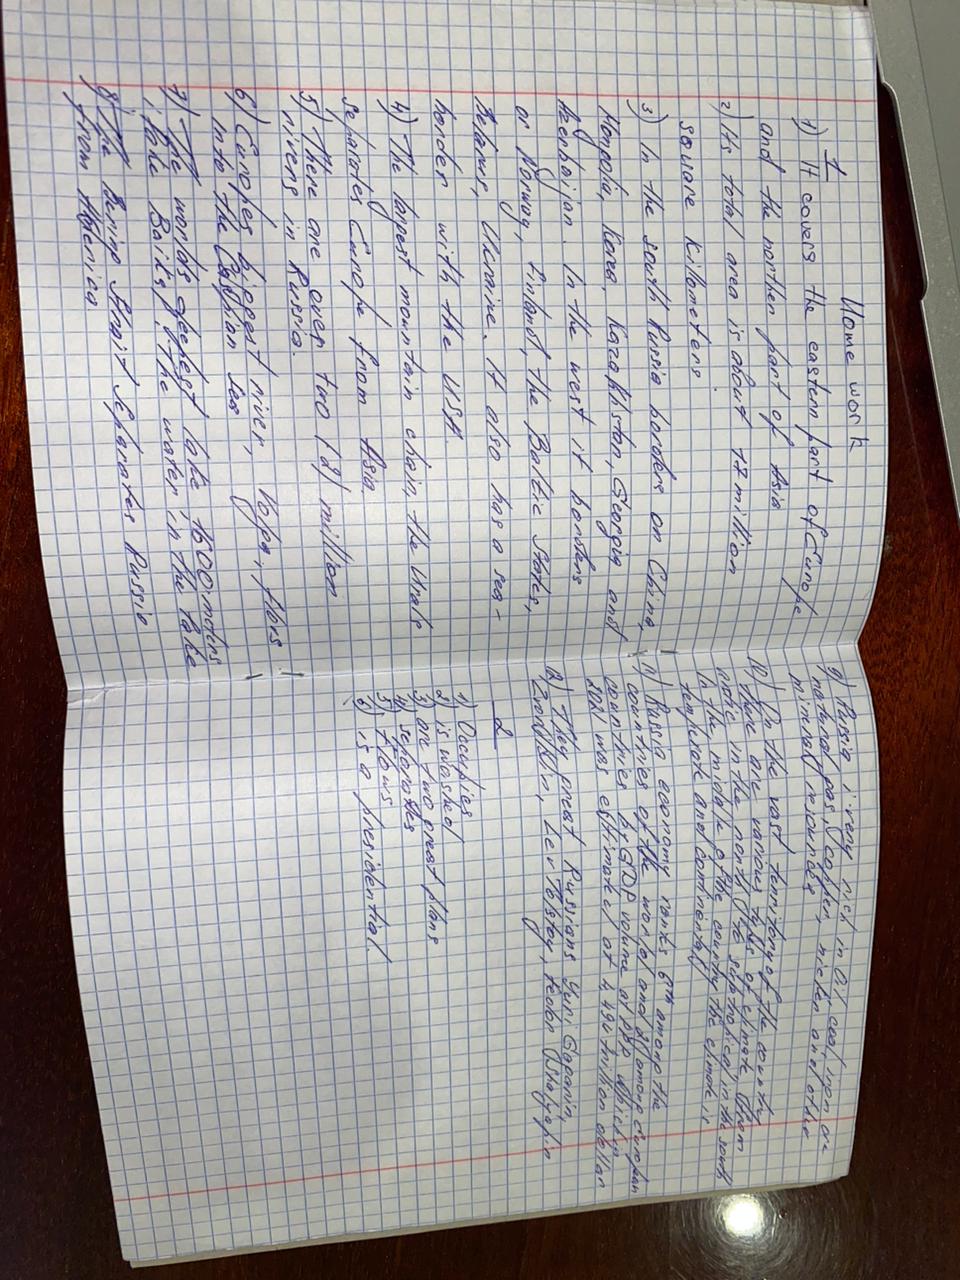 Home work
1
1) It covers the eastern part of Europe
and the northen part of Asia
2) It's total area is about 17 million
square killometers.
3) In the south Russia borders on China,
Mongolia, Korea, Kazakhstan, Georgia and
Azerbaijan. In the west it borders
or Norway, Finland, the Baltic States,
Belarus, Ukraine. It also has a sea-
border with the USA.
4) The largest mountain chain, the Urals
separates Europe from Asia.
5) There are over two (2) million
rivers in Russia.
6) Europes biggest river, Volga, flows
into the Caspian sea
7) The worlds deepest lake 1600 meters
lake the water in the lake
8) The Bering Strait separates Russia
from America.
9) Russia is very rich in oil, coal, iron ore
natural gas, copper, nickel and other
mineral resources
10) On the vast territory of the country
there are various types of climate, from
in the north to subtropical in the south
In the middle of the country the climate is
temperate and continental
11) Russia economy ranks 6th among the
countries of the world and among european
countries by GDP volume at PPP
2021 was estimated at 4,490 trillion dollar
12) They great Russians Yuri Gagarin,
Lev Tolstoy, Fedor Shalyapin
2
1) Occupies
2) is washed
3) are two great plans
4) separates
5) flows
6) is a presidential